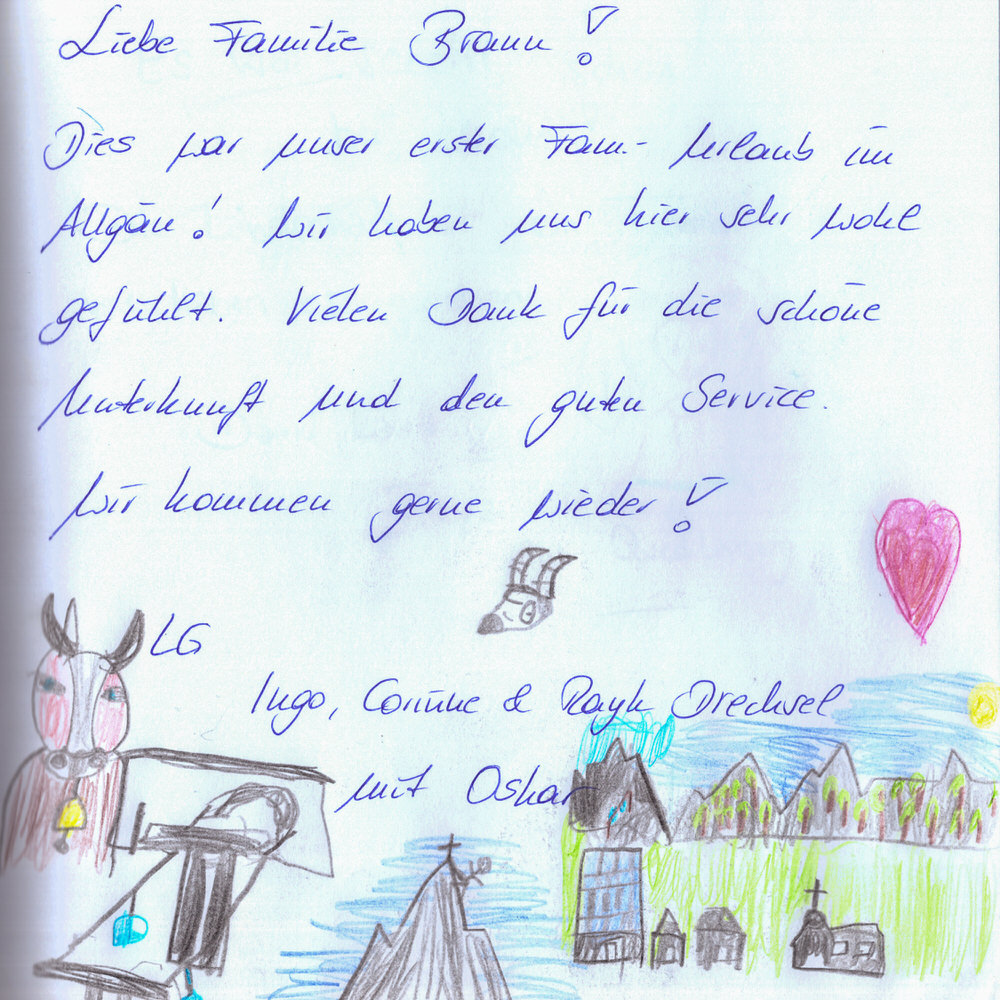 Liebe Familie Braun!
Dies war unser erster Fam.- Urlaub im
Allgäu! Wir haben uns hier sehr wohl
gefühlt. Vielen Dank für die schöne
Unterkunft und den guten Service.
Wir kommen gerne wieder!
LG
Ingo, Corinne & Rayk Drechsel
mit Oskar